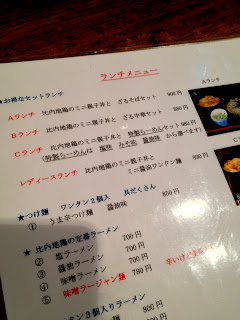 ランチメニュー
★お得なセットランチ
Aランチ 比内地鶏のミニ親子丼と ざるそばセット 900円
Bランチ 比内地鶏のミニ親子丼と ざる中華セット
Cランチ 比内地鶏のミニ親子丼と 特製らーめんセット 980円
(特製らーめんは 塩味 みそ味 醤油味 から選べます)
レディースランチ 比内地鶏のミニ親子丼と
ミニ醤油ワンタン麺
★つけ麺 ワンタン2個入 具だくさん
① うま辛つけ麺 醤油味 850円
★ 比内地鶏の定番ラーメン
② 塩ラーメン 700円
③ 醤油ラーメン 700円
④ 味噌ラーメン 700円
⑤ 味噌ラージャン麺 780円
タン3個入りラーメン
Aランチ